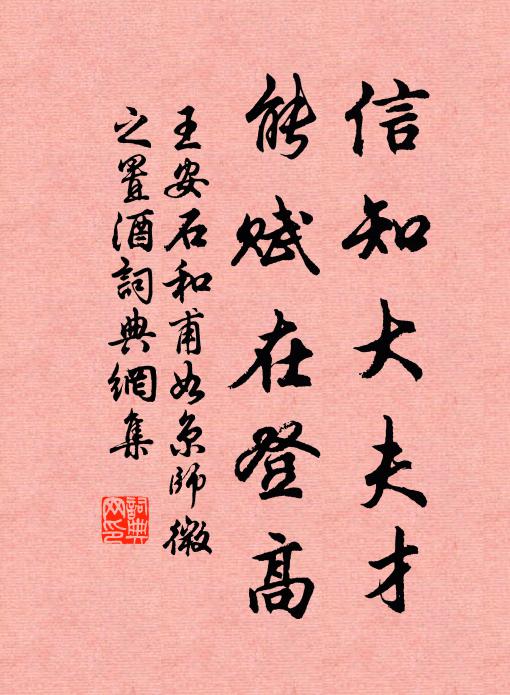 信知大夫才
能赋在登高
王安石和甫如京師微
之置酒詞典網集
詞典
网印